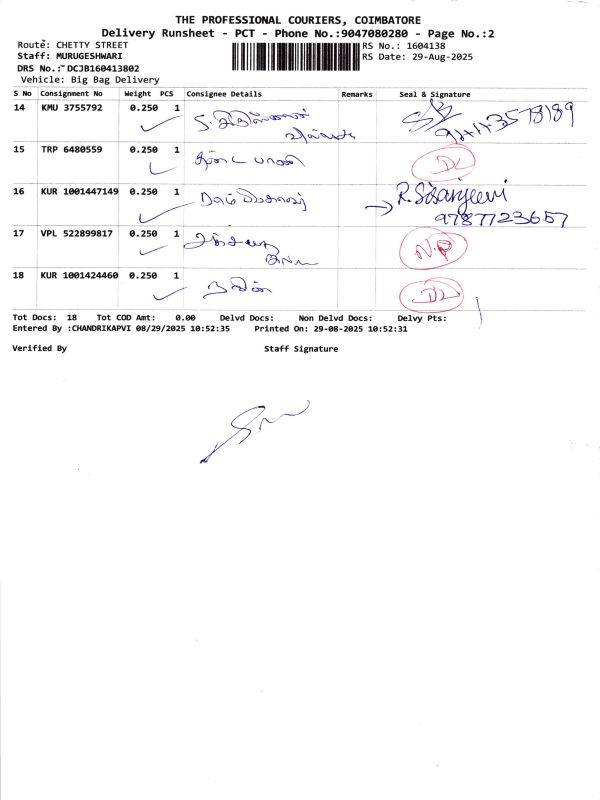 THE PROFESSIONAL COURIERS, COIMBATORE
Delivery Runsheet - PCT - Phone No.:9047080280 - Page No.:2
Route: CHETTY STREET
RS No.: 1604138
Staff: MURUGESHWARI
RS Date: 29-Aug-2025
DRS No.: DCJB160413802
Vehicle: Big Bag Delivery
S No Consignment No Weight PCS Consignee Details Remarks Seal & Signature
14 KMU 3755792 0.250 1
15 TRP 6480559 0.250 1 DL
16 KUR 1001447149 0.250 1 R. Sibanjeevi
9787723657
17 VPL 522899817 0.250 1 N.P
18 KUR 1001424460 0.250 1 DL
Tot Docs: 18 Tot COD Amt: 0.00 Delvd Docs: Non Delvd Docs: Delvy Pts:
Entered By :CHANDRIKAPVI 08/29/2025 10:52:35 Printed On: 29-08-2025 10:52:31
Verified By Staff Signature